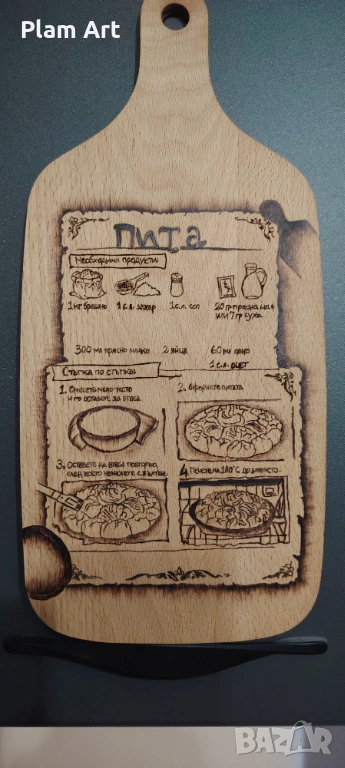 Plam Art
Пита
Необходими продукти:
1 кг брашно 1 с.л. захар 1 с.л. сол 20 гр прясна мая
или 7 гр суха
300 мл прясно мляко 2 яйца 60 мл олио
1 с.л. оцет
Стъпка по стъпка
1. Омесете меко тесто
и го оставете да втаса.
2. Оформете питата.
3. Оставете да втаса повторно,
след което намажете с жълтък.
4. Печене на 180°C до златисто.
BAZAR